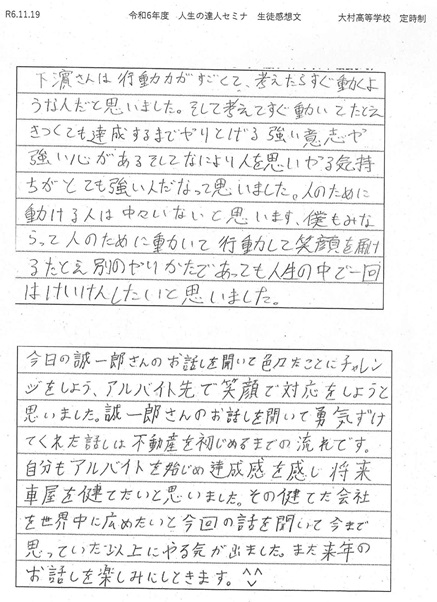 R6.11.19 令和6年度 人生の達人セミナ 生徒感想文 大村高等学校 定時制
下濵さんは行動力がすごくて、考えたらすぐ動くよ
うな人だと思いました。そして考えてすぐ動いてたとえ
きつくても達成するまでやりとげる強い意志や
強い心があるそしてなにより人を思いやる気持
ちがとても強い人だなって思いました。人のために
動ける人は中々いないと思います、僕もみな
らって人のために動いて行動して笑顔を届け
るたとえ別のやりかたであっても人生の中で一回
はけいけんしたいと思いました。
今日の誠一郎さんのお話しを聞いて色々たことにチャレン
ジをしよう、アルバイト先で笑顔で対応をしようと
思いました。誠一郎さんのお話しを聞いて勇気ずけ
てくれた話しは不動産を初じめるまでの流れです。
自分もアルバイトを始じめ達成感を感し将来
車屋を健てたいと思いました。その健てた会社
を世界中に広めたいと今回の話を聞いて今まで
思っていた以上にやる気が出ました。また来年の
お話しを楽しみにしときます。^^